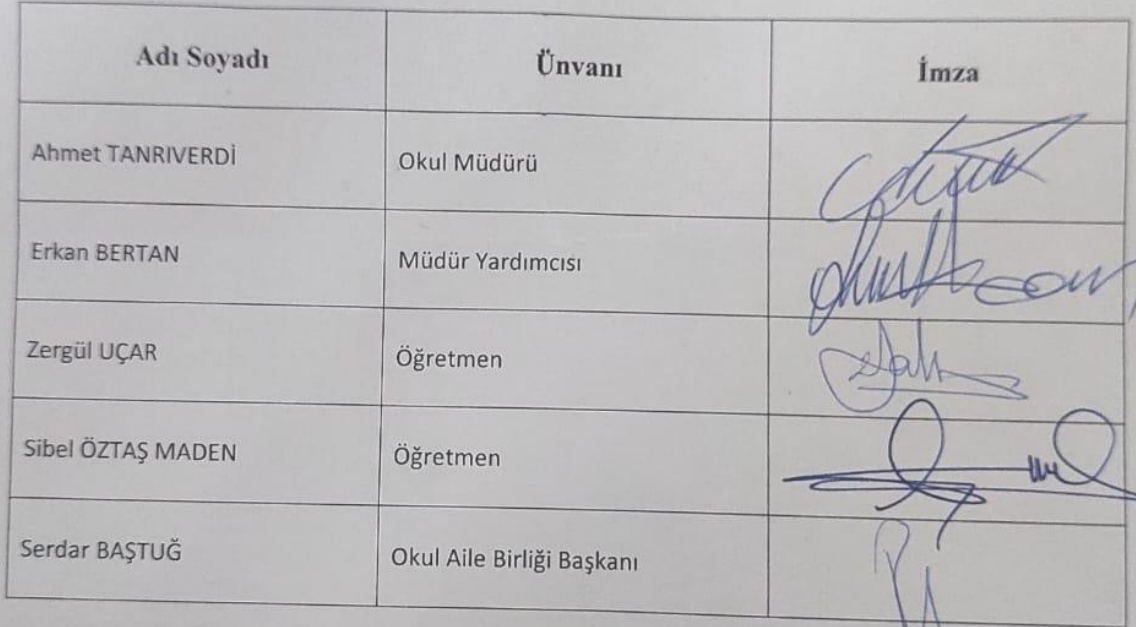 Adı Soyadı Ünvanı İmza
Ahmet TANRIVERDİ Okul Müdürü
Erkan BERTAN Müdür Yardımcısı
Zergül UÇAR Öğretmen
Sibel ÖZTAŞ MADEN Öğretmen
Serdar BAŞTUĞ Okul Aile Birliği Başkanı